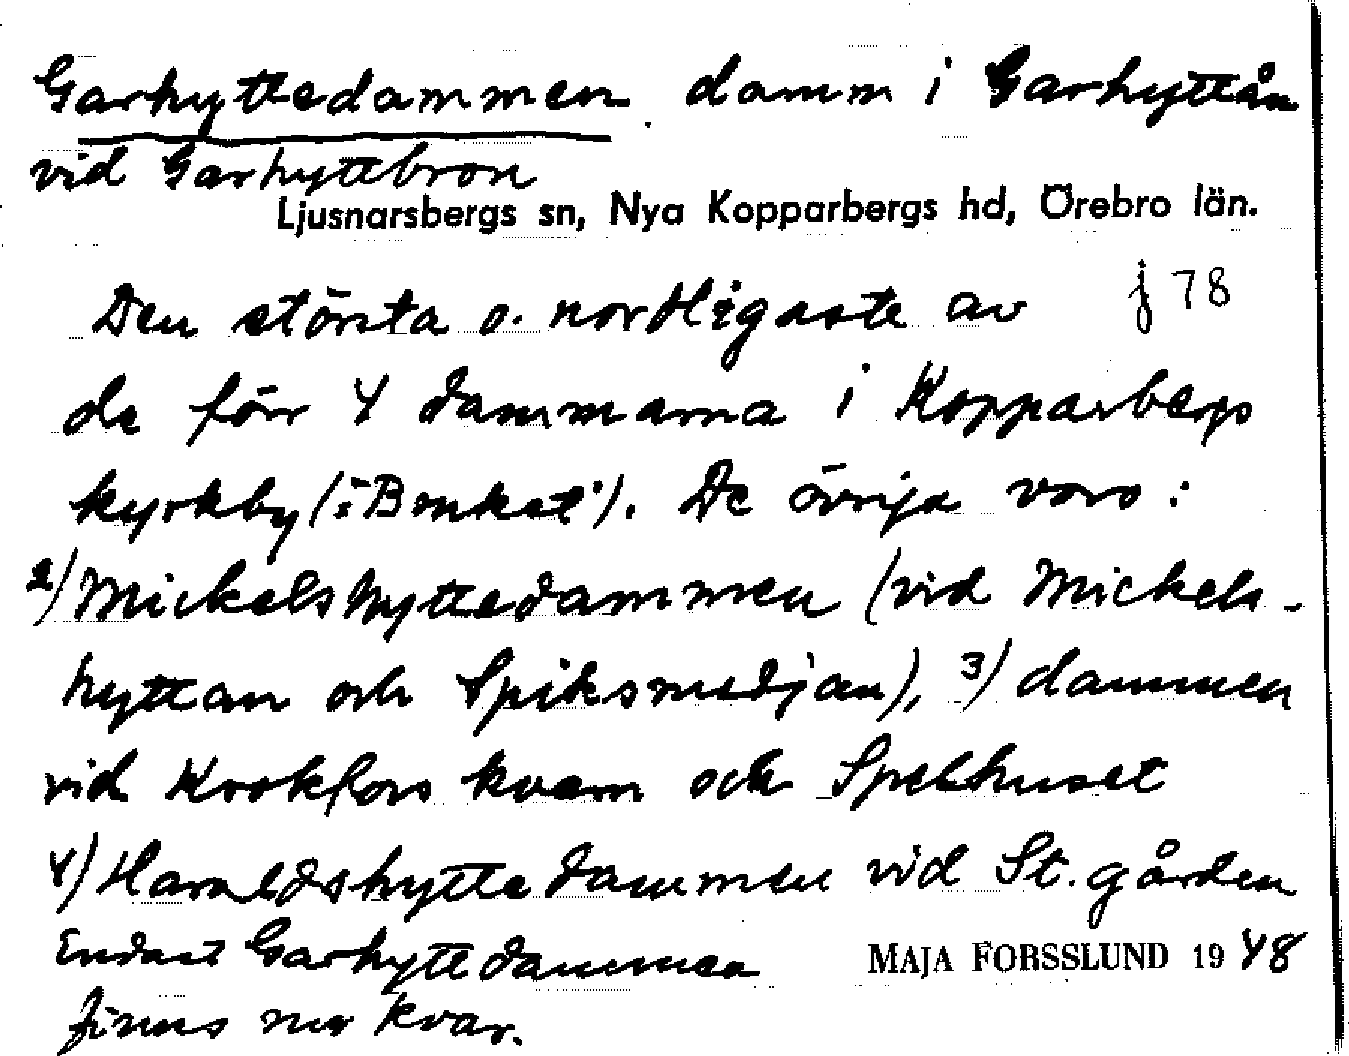 Garhyttedammen. damm i Garhyttån
vid Garhyttebron
Ljusnarsbergs sn, Nya Kopparbergs hd, Örebro län.
Den största o. nordligaste av
f 78
de förr 4 dammarna i Kopparbergs
kyrkby (i "Bruket"). De övriga voro:
2) Mickelshyttedammen (vid Mickels-
hyttan och Spiksmedjan), 3) dammen
vid Krokfors kvarn och Spelhuset
4) Haraldshyttedammen vid St. gården
Endast Garhyttedammen
MAJA FORSSLUND 1948
finns nu kvar.